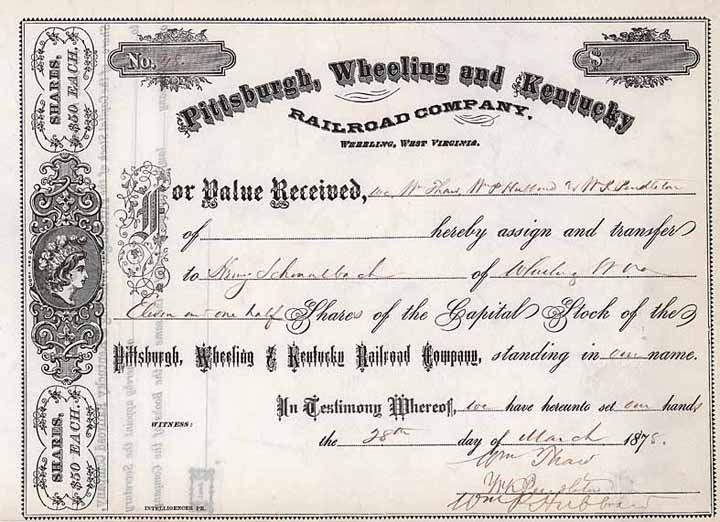 No. 48
$
SHARES, $50 EACH.
Pittsburgh, Wheeling and Kentucky
RAILROAD COMPANY.
WHEELING, WEST VIRGINIA.
For Value Received, we Wm Thaw, W P Hubbard & W K Pendleton
of hereby assign and transfer
to Henry Schmulbach of Wheeling W Va
Eleven and one half Shares of the Capital Stock of the
Pittsburgh, Wheeling & Kentucky Railroad Company, standing in our name.
In Testimony Whereof, we have hereunto set our hands
WITNESS:
the 28th day of March 1878.
Wm Thaw
W K Pendleton
Wm P Hubbard
SHARES, $50 EACH.
INTELLIGENCER PR.